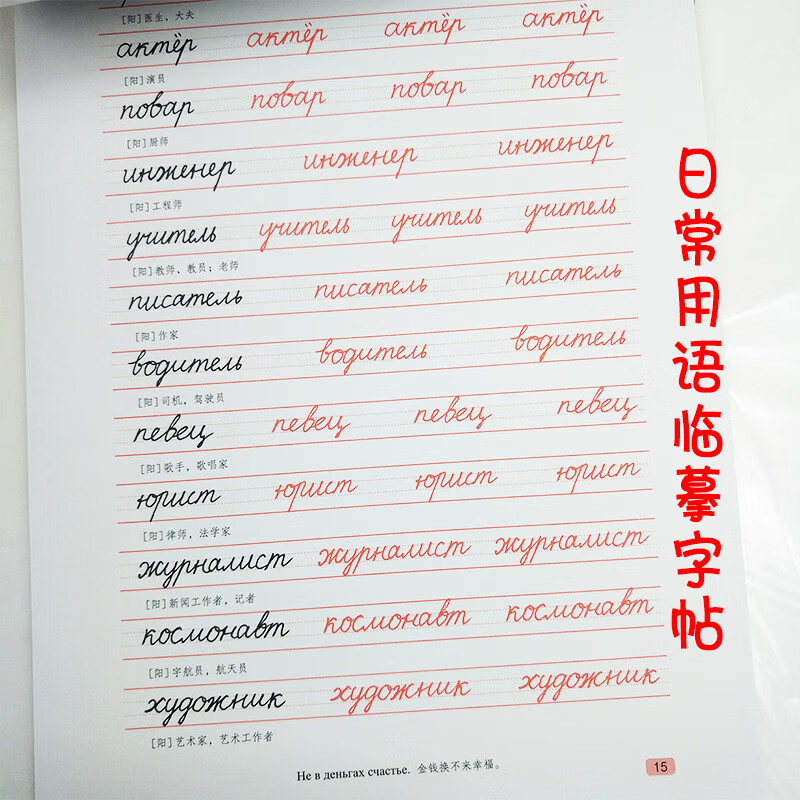 [阳]医生，大夫
актёр актёр актёр актёр
[阳]演员
повар повар повар повар
[阳]厨师
инженер инженер инженер
[阳]工程师
учитель учитель учитель учитель
[阳]教师、教员；老师
писатель писатель писатель
[阳]作家
водитель водитель водитель
[阳]司机，驾驶员
певец певец певец певец
[阳]歌手，歌唱家
юрист юрист юрист юрист
[阳]律师，法学家
журналист журналист журналист
[阳]新闻工作者，记者
космонавт космонавт космонавт
[阳]宇航员，航天员
художник художник художник
[阳]艺术家，艺术工作者
Не в деньгах счастье. 金钱换不来幸福。
15
日常用语临摹字帖